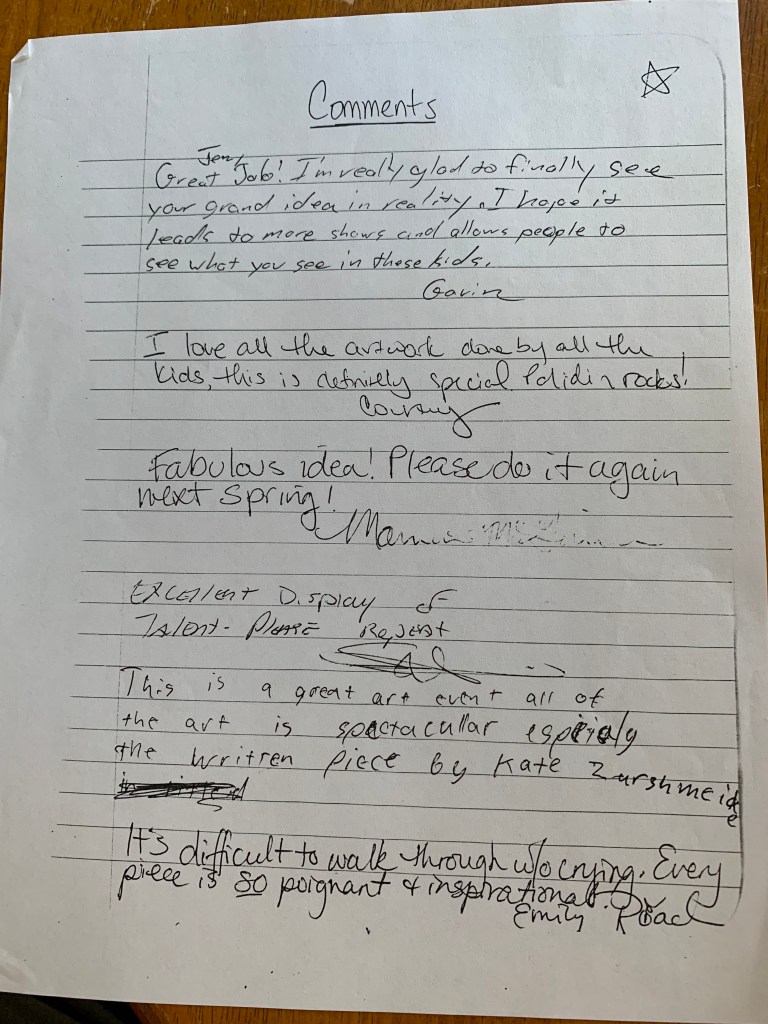 Comments
Jeny
Great Job! I'm really glad to finally see
your grand idea in reality. I hope it
leads to more shows and allows people to
see what you see in these kids.
Gavin
I love all the artwork done by all the
kids, this is definitely special rocks!
Fabulous idea! Please do it again
next spring!
Excellent Display of
Talent - Please Repeat
This is a great art event all of
the art is spectacullar
the writren piece by Kate
It's difficult to walk through w/o crying. Every
piece is SO poignant & inspirational.
Emily Roach